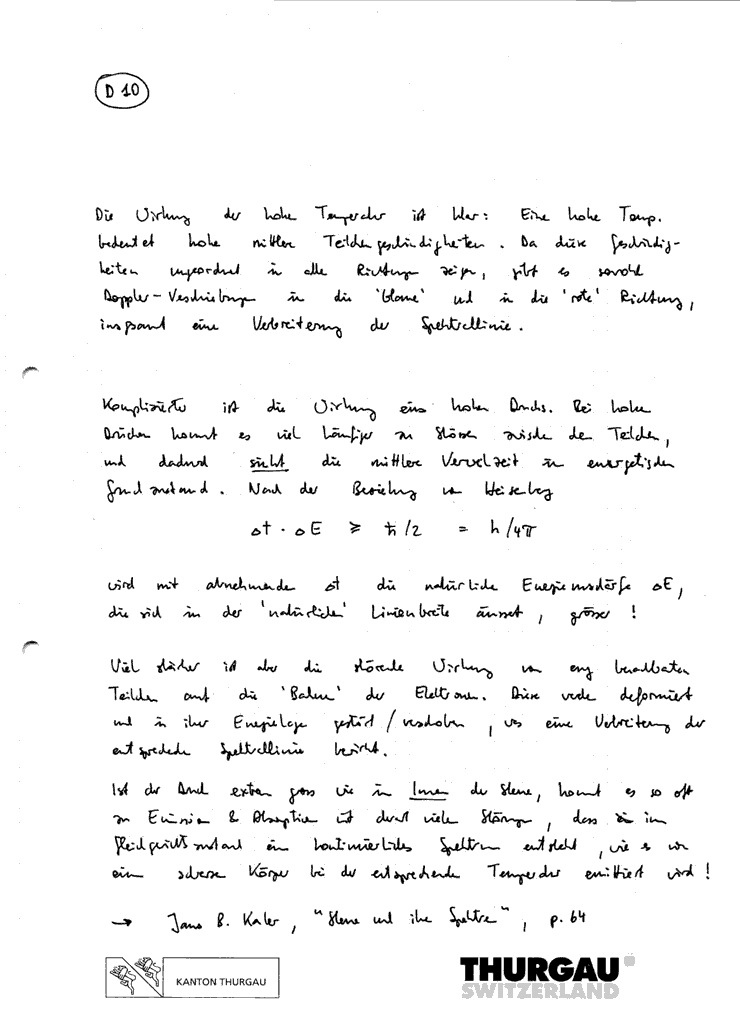 D 10
Die Wirkung der hohen Temperatur ist klar: Eine hohe Temp.
bedeutet hohe mittlere Teilchengeschwindigkeiten. Da diese Geschwindig-
keiten ungeordnet in alle Richtungen zeigen, gibt es sowohl
Doppler-Verschiebungen in die 'blaue' und in die 'rote' Richtung,
insgesamt eine Verbreiterung der Spektrallinie.
Komplizierter ist die Wirkung eines hohen Drucks. Bei hohen
Drücken kommt es viel häufiger zu Stössen zwischen den Teilchen,
und dadurch sinkt die mittlere Verweilzeit im energetischen
Grundzustand. Nach der Beziehung von Heisenberg
Δt · ΔE ≥ ħ/2 = h/4π
wird mit abnehmendem Δt die natürliche Energieunschärfe ΔE,
die sich in der 'natürlichen' Linienbreite äussert, grösser!
Viel stärker ist aber die störende Wirkung von eng benachbarten
Teilchen auf die 'Bahnen' der Elektronen. Diese werden deformiert
und in ihrer Energielage gestört/verschoben, was eine Verbreiterung der
entsprechenden Spektrallinie bewirkt.
Ist der Druck extrem gross wie im Innern der Sterne, kommt es so oft
zu Emission & Absorption und derart vielen Störungen, dass im
Gleichgewichtszustand ein kontinuierliches Spektrum entsteht, wie es von
einem schwarzen Körper bei der entsprechenden Temperatur emittiert wird!
→ James B. Kaler, "Sterne und ihre Spektren", p. 64
KANTON THURGAU
THURGAU
SWITZERLAND